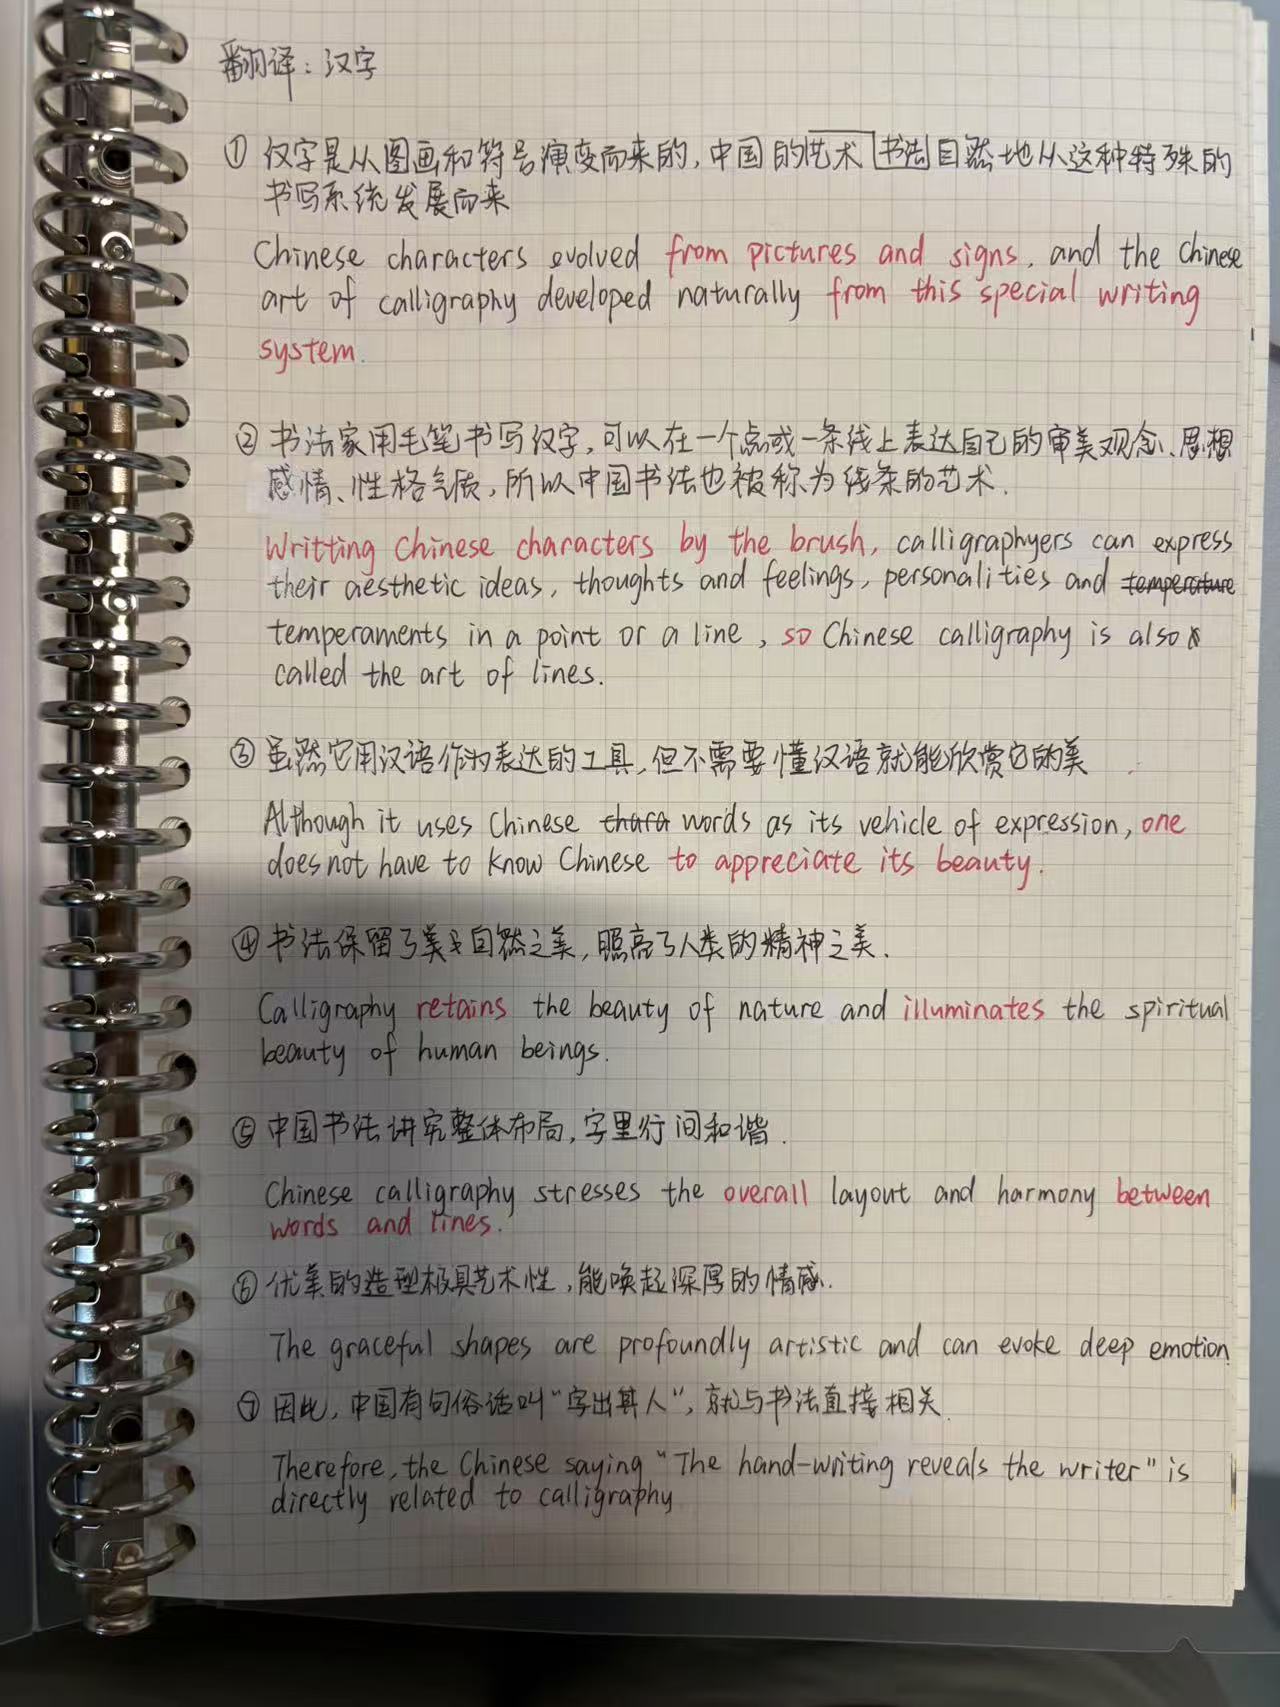 翻译：汉字
① 汉字是从图画和符号演变而来的，中国的艺术书法自然地从这种特殊的
书写系统发展而来
Chinese characters evolved from pictures and signs, and the Chinese
art of calligraphy developed naturally from this special writing
system.
② 书法家用毛笔书写汉字，可以在一个点或一条线上表达自己的审美观念、思想
感情、性格气质，所以中国书法也被称为线条的艺术.
Writting Chinese characters by the brush, calligraphyers can express
their aesthetic ideas, thoughts and feelings, personalities and temperature
temperaments in a point or a line, so Chinese calligraphy is also
called the art of lines.
③ 虽然它用汉语作为表达的工具，但不需要懂汉语就能欣赏它的美
Although it uses Chinese chara words as its vehicle of expression, one
does not have to know Chinese to appreciate its beauty.
④ 书法保留了美自然之美，照亮了人类的精神之美.
Calligraphy retains the beauty of nature and illuminates the spiritual
beauty of human beings.
⑤ 中国书法讲究整体布局，字里行间和谐.
Chinese calligraphy stresses the overall layout and harmony between
words and lines.
⑥ 优美的造型极具艺术性，能唤起深厚的情感.
The graceful shapes are profoundly artistic and can evoke deep emotion
⑦ 因此，中国有句俗话叫“字出其人”，就与书法直接相关.
Therefore, the Chinese saying “The hand-writing reveals the writer” is
directly related to calligraphy